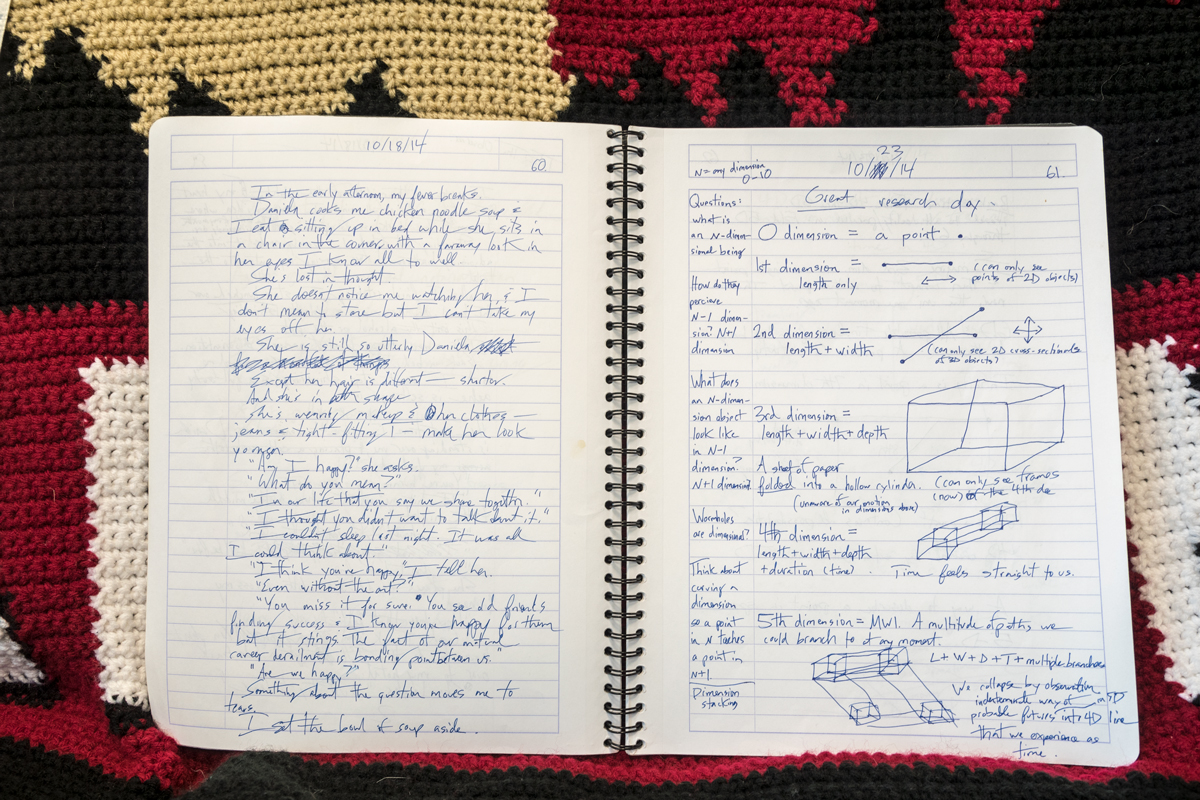 10/18/14
60.
In the early afternoon, my fever breaks.
Daniela cooks me chicken noodle soup &
I eat sitting up in bed while she sits in
a chair in the corner with a faraway look in
her eyes I know all to well.
She's lost in thought.
She doesn't notice me watching her, & I
don't mean to stare but I can't take my
eyes off her.
She is still so utterly Daniela
Except her hair is different — shorter.
And she's in better shape
she's wearing makeup & her clothes —
jeans & tight-fitting T — make her look
younger.
"Am I happy?" she asks.
"What do you mean?"
"In our life that you say we share together."
"I thought you didn't want to talk about it."
"I couldn't sleep last night. It was all
I could think about."
"I think you're happy," I tell her.
"Even without the art?"
"You miss it for sure. You see old friends
finding success & I know you're happy for them
but it stings. The fact of our mutual
career is bonding point between us."
"Are we happy?"
Something about the question moves me to
tears.
I set the bowl of soup aside.
23
10/ /14
61.
N = any dimension
0-10
Great research day.
Questions:
what is
an N-dimen-
sional being
How do they
percieve
N-1 dimen-
sion? N+1
dimension
What does
an N-dimen-
sion object
look like
in N-1
dimension?
N+1 dimension?
Wormholes
are dimensional?
Think about
curving a
dimension
so a point
in N touches
a point in
N+1
Dimension
stacking
0 dimension = a point .
1st dimension =
length only
(can only see
points of 2D objects)
2nd dimension =
length + width
(can only see 2D cross-sections
of 3D objects?)
3rd dimension =
length + width + depth
A sheet of paper
folded into a hollow cylinder.
(can only see frames
(now) of the 4th de
(unaware of our motion
in dimensions above)
4th dimension =
length + width + depth
+ duration (time).
Time feels straight to us.
5th dimension = MWI. A multitude of paths, we
could branch to at any moment.
L + W + D + T + multiple branches
We collapse by observation
indeterminate way of in 5D
probable futures into 4D line
that we experience as
time.